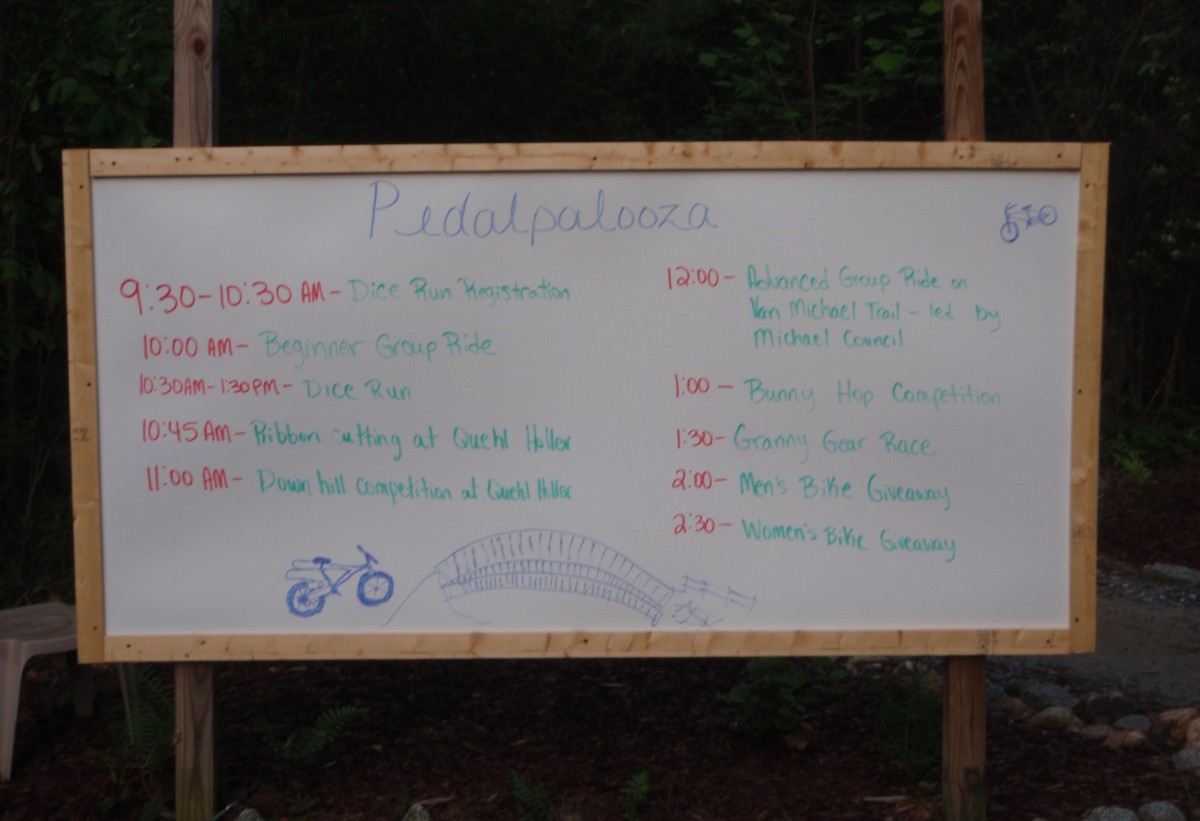 Pedalpalooza
9:30-10:30 AM - Dice Run Registration
10:00 AM - Beginner Group Ride
10:30AM - 1:30PM - Dice Run
10:45 AM - Ribbon cutting at Quehl Holler
11:00 AM - Down hill competition at Quehl Holler
12:00 - Advanced Group Ride on
Van Michael Trail - led by
Michael Council
1:00 - Bunny Hop Competition
1:30 - Granny Gear Race
2:00 - Men's Bike Giveaway
2:30 - Women's Bike Giveaway